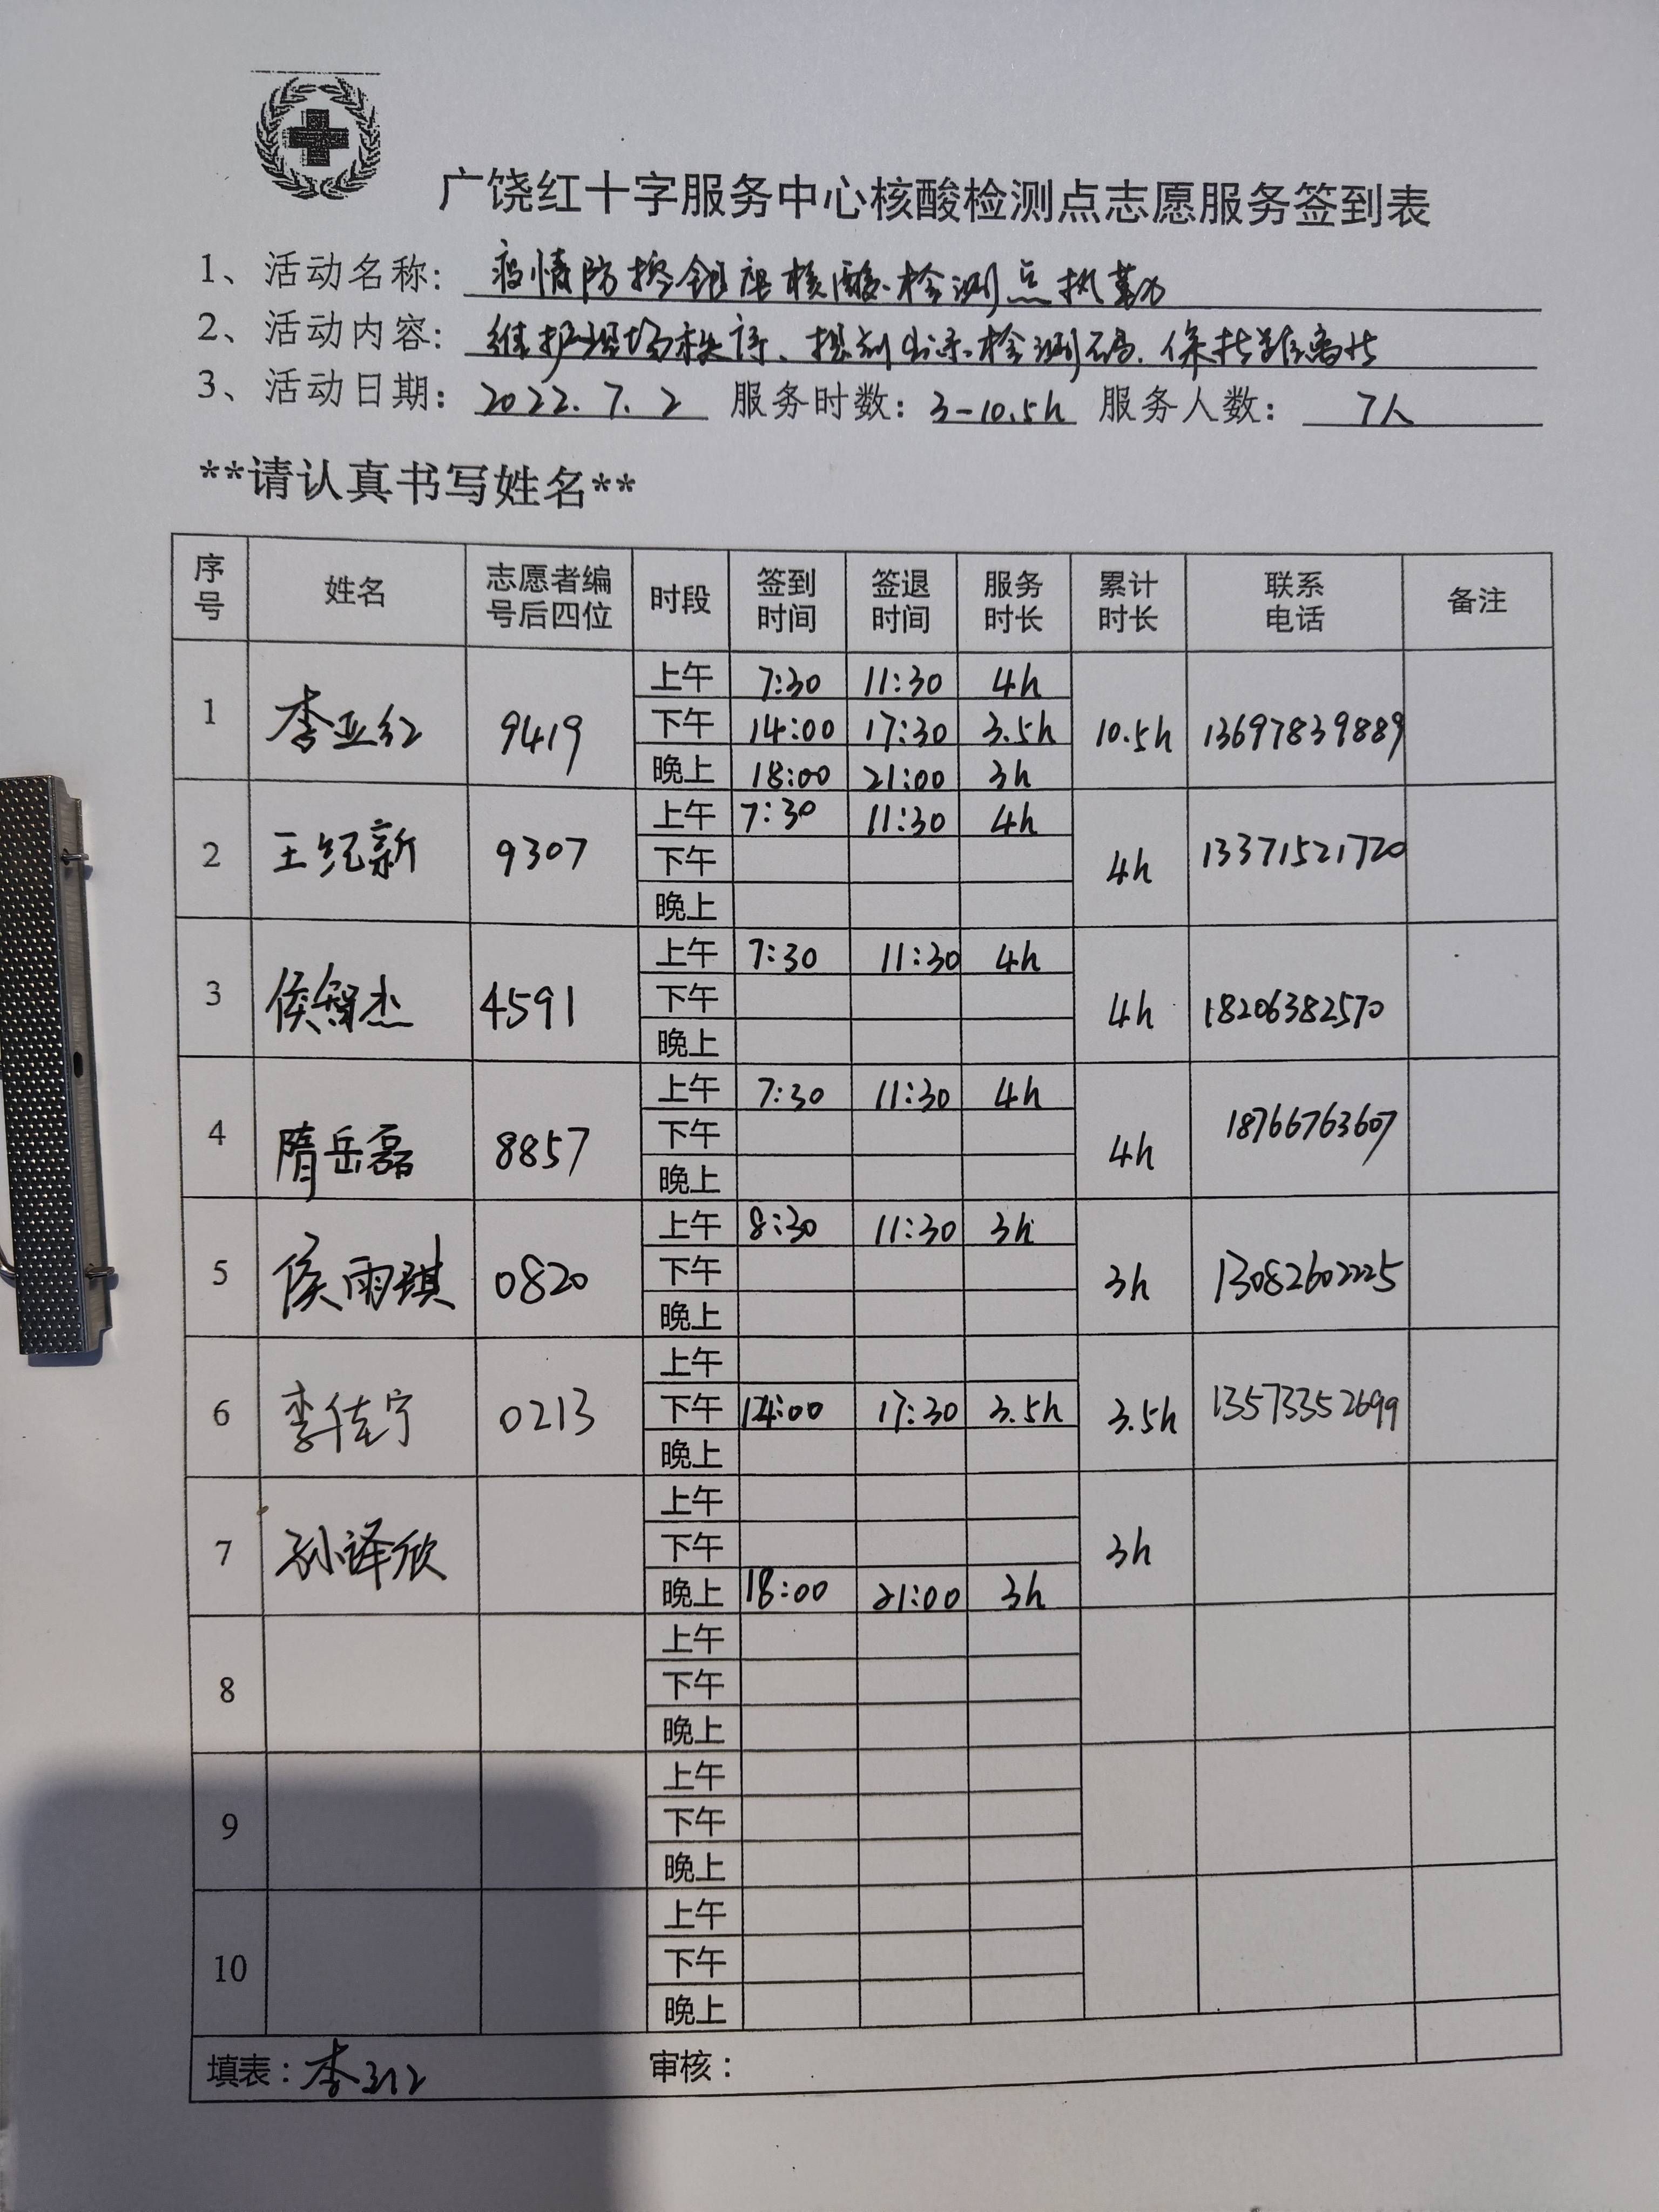 广饶红十字服务中心核酸检测点志愿服务签到表
1、活动名称: 疫情防控银座核酸检测点执勤
2、活动内容: 维护现场秩序、提前出示检测码、保持距离
3、活动日期: 2022.7.2 服务时数: 3-10.5h 服务人数: 7人
**请认真书写姓名**
序号 姓名 志愿者编号后四位 时段 签到时间 签退时间 服务时长 累计时长 联系电话 备注
1 李亚红 9419 上午 7:30 11:30 4h 10.5h 13697839889
下午 14:00 17:30 3.5h
晚上 18:00 21:00 3h
2 王纪新 9307 上午 7:30 11:30 4h 4h 13371521720
下午
晚上
3 侯智杰 4591 上午 7:30 11:30 4h 4h 18206382570
下午
晚上
4 隋岳磊 8857 上午 7:30 11:30 4h 4h 18766763607
下午
晚上
5 侯雨琪 0820 上午 8:30 11:30 3h 3h 13082602225
下午
晚上
6 李佳宁 0213 上午 3.5h 13573352699
下午 14:00 17:30 3.5h
晚上
7 孙译欣 上午 3h
下午
晚上 18:00 21:00 3h
8 上午
下午
晚上
9 上午
下午
晚上
10 上午
下午
晚上
填表: 李亚红 审核: